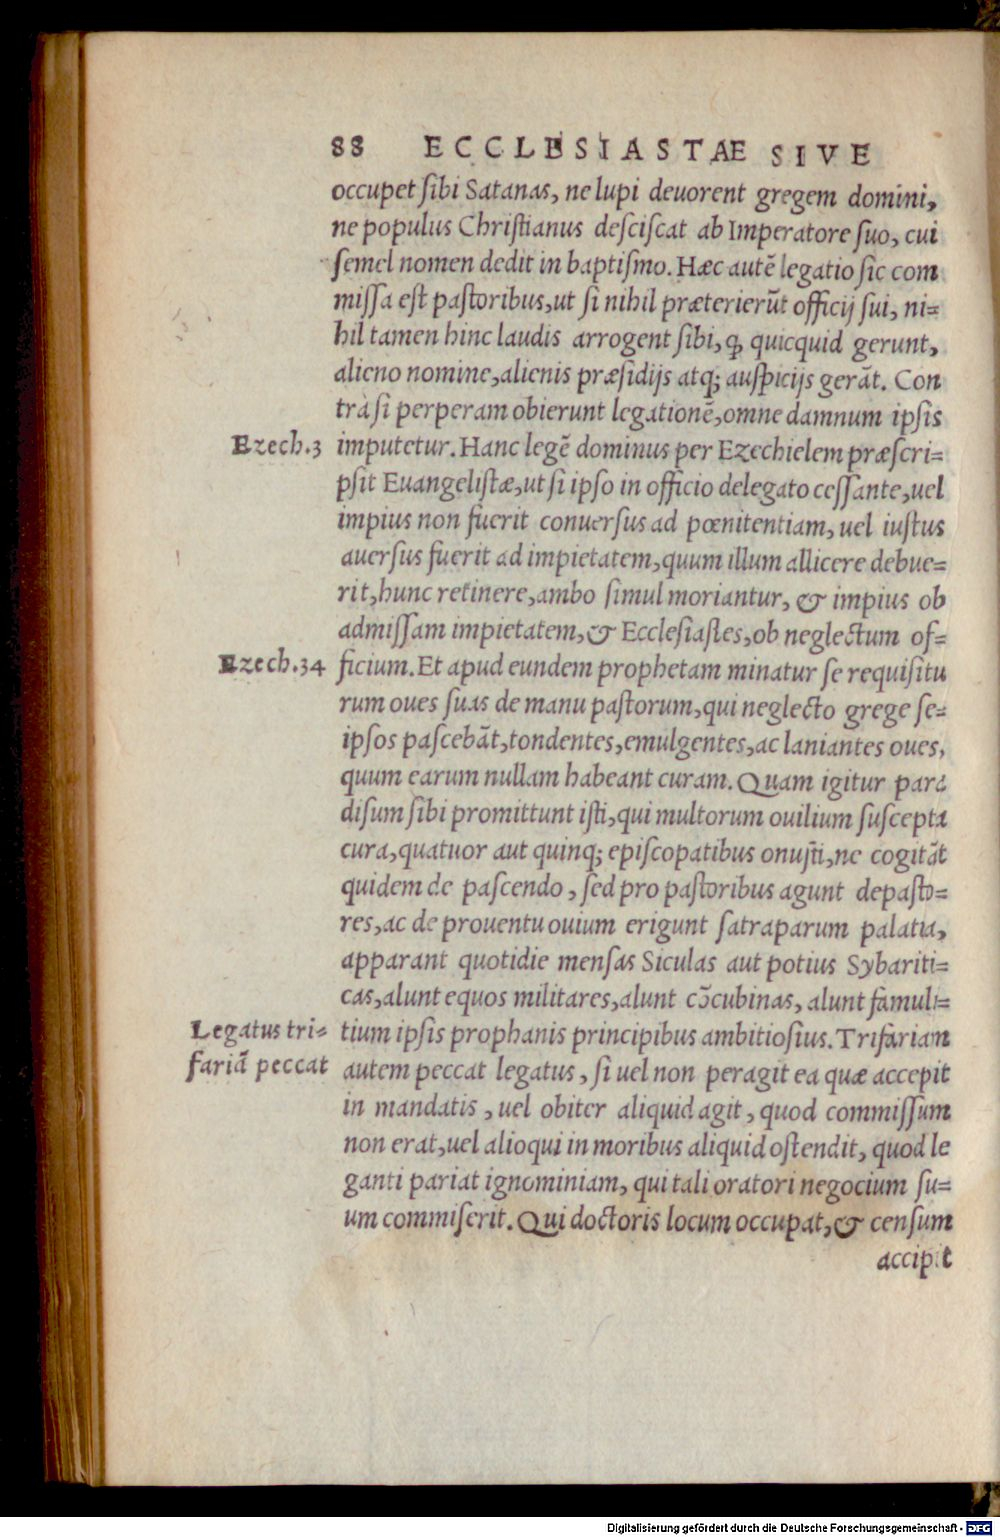 88 ECCLESIASTAE SIVE
occupet sibi Satanas, ne lupi deuorent gregem domini,
ne populus Christianus desciscat ab Imperatore suo, cui
semel nomen dedit in baptismo. Hæc autē legatio sic com
missa est pastoribus, ut si nihil præterierūt officij sui, ni=
hil tamen hinc laudis arrogent sibi, ꝙ quicquid gerunt,
alieno nomine, alienis præsidijs atq; auspicijs gerāt. Con
trà si perperam obierunt legationē, omne damnum ipsis
Ezech.3 imputetur. Hanc legē dominus per Ezechielem præscri=
psit Euangelistæ, ut si ipso in officio delegato cessante, uel
impius non fuerit conuersus ad pœnitentiam, uel iustus
auersus fuerit ad impietatem, quum illum allicere debue=
rit, hunc retinere, ambo simul moriantur, & impius ob
admissam impietatem, & Ecclesiastes, ob neglectum of=
Ezech.34 ficium. Et apud eundem prophetam minatur se requisitu
rum oues suas de manu pastorum, qui neglecto grege se=
ipsos pascebāt, tondentes, emulgentes, ac laniantes oues,
quum earum nullam habeant curam. Quam igitur para
disum sibi promittunt isti, qui multorum ouilium suscepta
cura, quatuor aut quinq; episcopatibus onusti, ne cogitāt
quidem de pascendo, sed pro pastoribus agunt depasto=
res, ac de prouentu ouium erigunt satraparum palatia,
apparant quotidie mensas Siculas aut potius Sybariti=
cas, alunt equos militares, alunt cōcubinas, alunt famuli=
Legatus tri= tium ipsis prophanis principibus ambitiosius. Trifariam
fariā peccat autem peccat legatus, si uel non peragit ea quæ accepit
in mandatis, uel obiter aliquid agit, quod commissum
non erat, uel alioqui in moribus aliquid ostendit, quod le
ganti pariat ignominiam, qui tali oratori negocium su=
um commiserit. Qui doctoris locum occupat, & censum
accipit
Digitalisierung gefördert durch die Deutsche Forschungsgemeinschaft - DFG